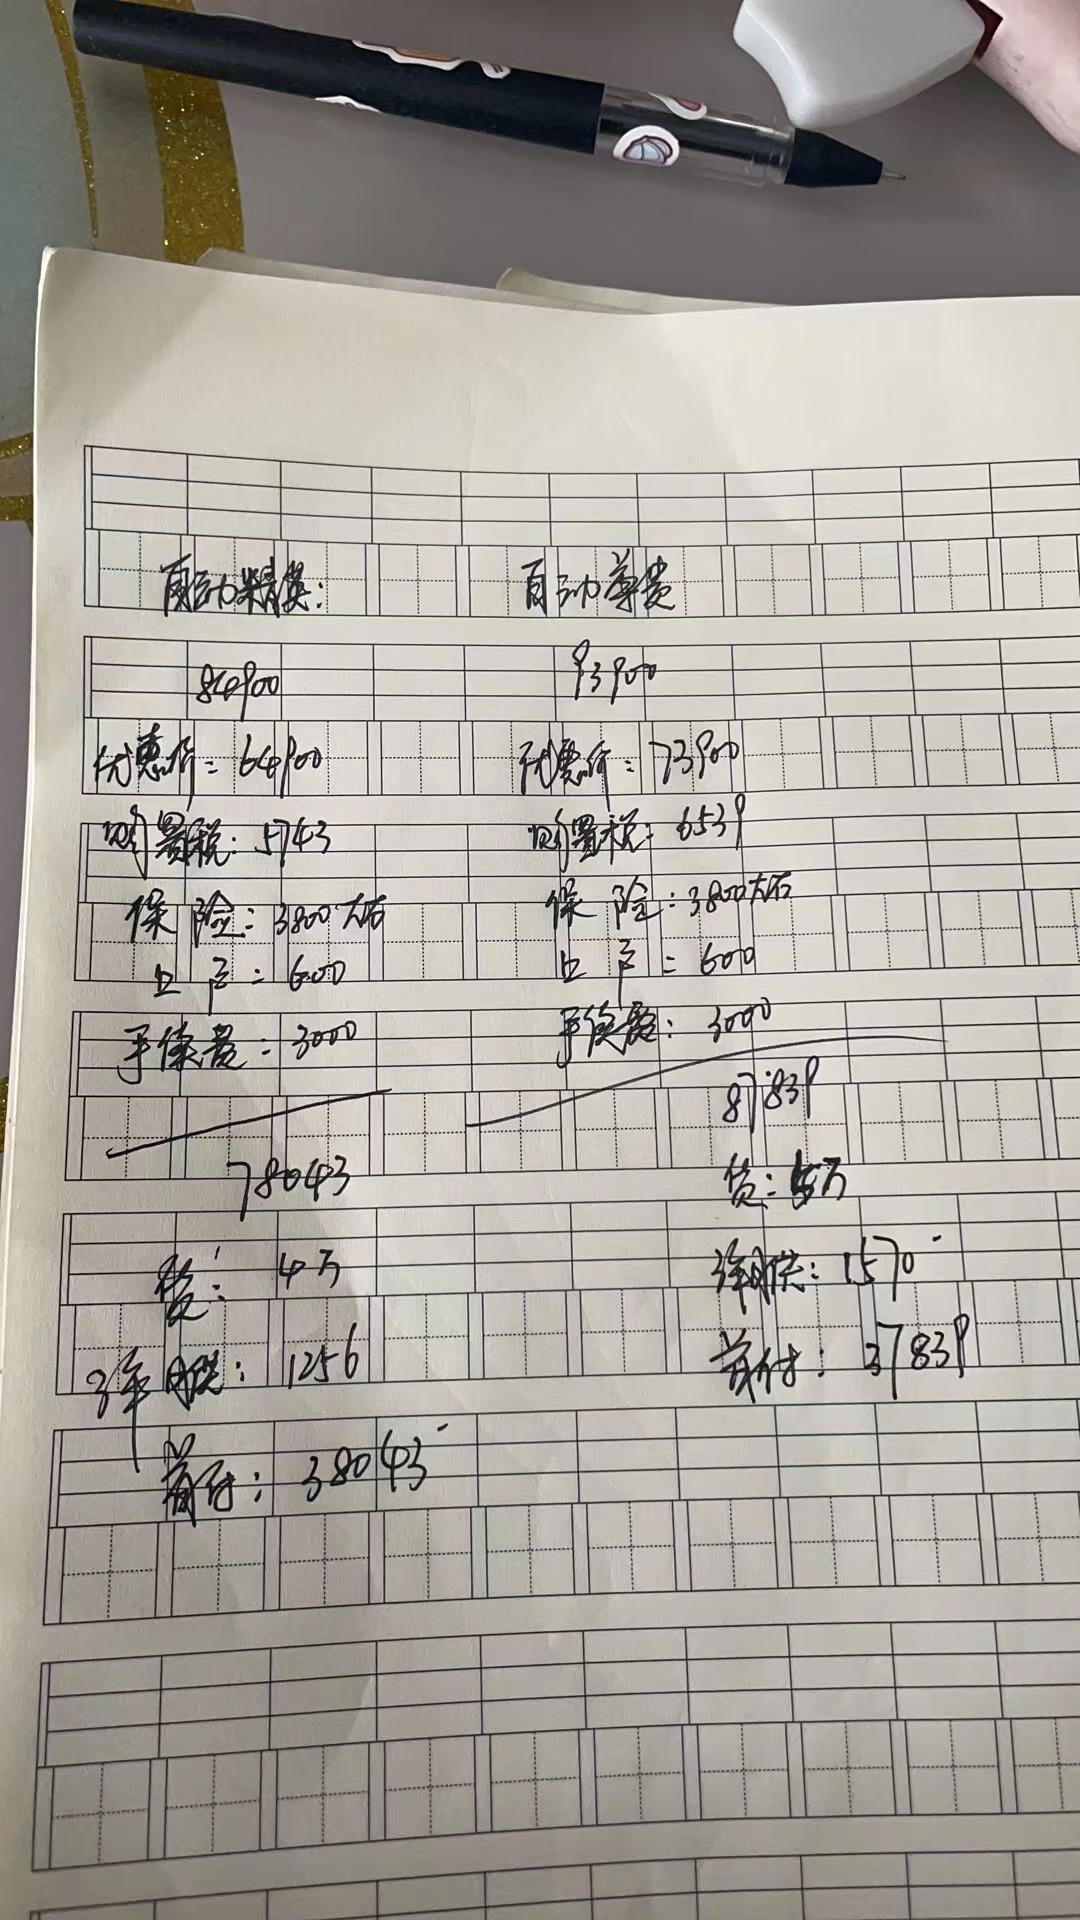 自动精英:
84900
优惠价: 64900
购置税: 5743
保险: 3800左右
上户: 600
手续费: 3000
78043
贷: 4万
3年月供: 1256
首付: 38043
自动尊贵
93900
优惠价: 73900
购置税: 6539
保险: 3800左右
上户: 600
手续费: 3000
87839
贷: 5万
3年月供: 1570
首付: 37839